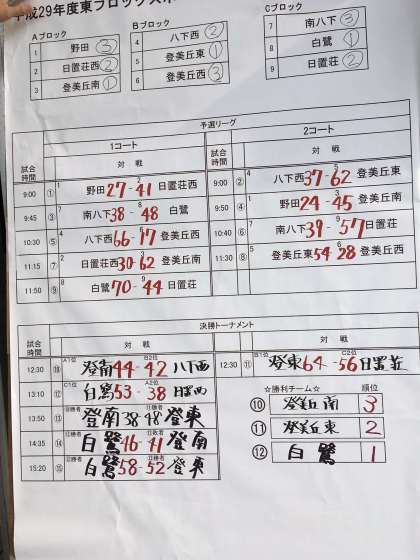 平成29年度東ブロック大
Aブロック
1 野田 ③
2 日置荘西 ②
3 登美丘南 ①
Bブロック
4 八下西 ②
5 登美丘東 ①
6 登美丘西 ③
Cブロック
7 南八下 ③
8 白鷺 ①
9 日置荘 ②
予選リーグ
1コート 2コート
試合時間 対戦 試合時間 対戦
9:00 ① 1 野田 27-41 2 日置荘西 9:00 ② 4 八下西 37-62 5 登美丘東
9:45 ③ 7 南八下 38-48 8 白鷺 9:50 ④ 1 野田 24-45 3 登美丘南
10:30 ⑤ 4 八下西 66-17 6 登美丘西 10:40 ⑥ 7 南八下 39-57 9 日置荘
11:15 ⑦ 2 日置荘西 30-62 3 登美丘南 11:30 ⑧ 5 登美丘東 54-28 6 登美丘西
11:50 ⑨ 8 白鷺 70-44 9 日置荘
決勝トーナメント
試合時間 対戦 対戦
12:30 ⑩ A1位 登南 44-42 B2位 八下西 12:30 ⑪ B1位 登東 64-56 C2位 日置荘
13:10 ⑫ C1位 白鷺 53-38 A2位 日置西
13:50 ⑬ 登南 38-48 登東
14:35 ⑭ 白鷺 46-41 登南
15:20 ⑮ 白鷺 58-52 登東
☆勝利チーム☆ 順位
⑩ 登美丘南 3
⑪ 登美丘東 2
⑫ 白鷺 1